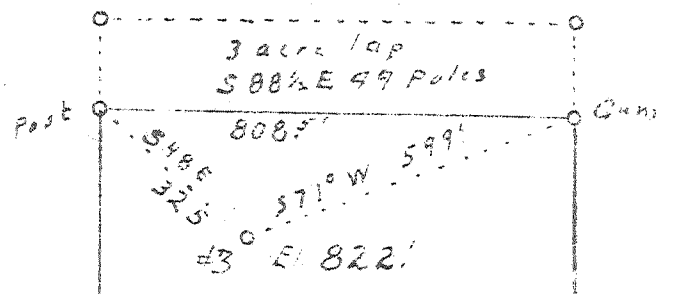 3 acre lap
S 88½ E 49 Poles
Post
Gum
808.5'
S48E
325'
S71° W 599'
#3 El 822'